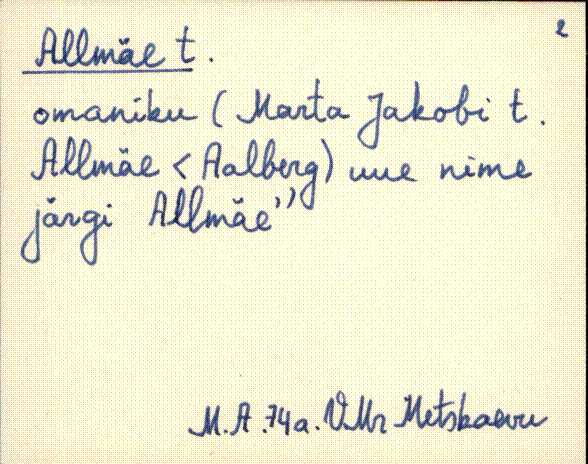 2
Allmäe t.
omaniku (Marta Jakobi t.
Allmäe < Aalberg) uue nime
järgi Allmäe"
M.A. 74a. VMr Metskaevu